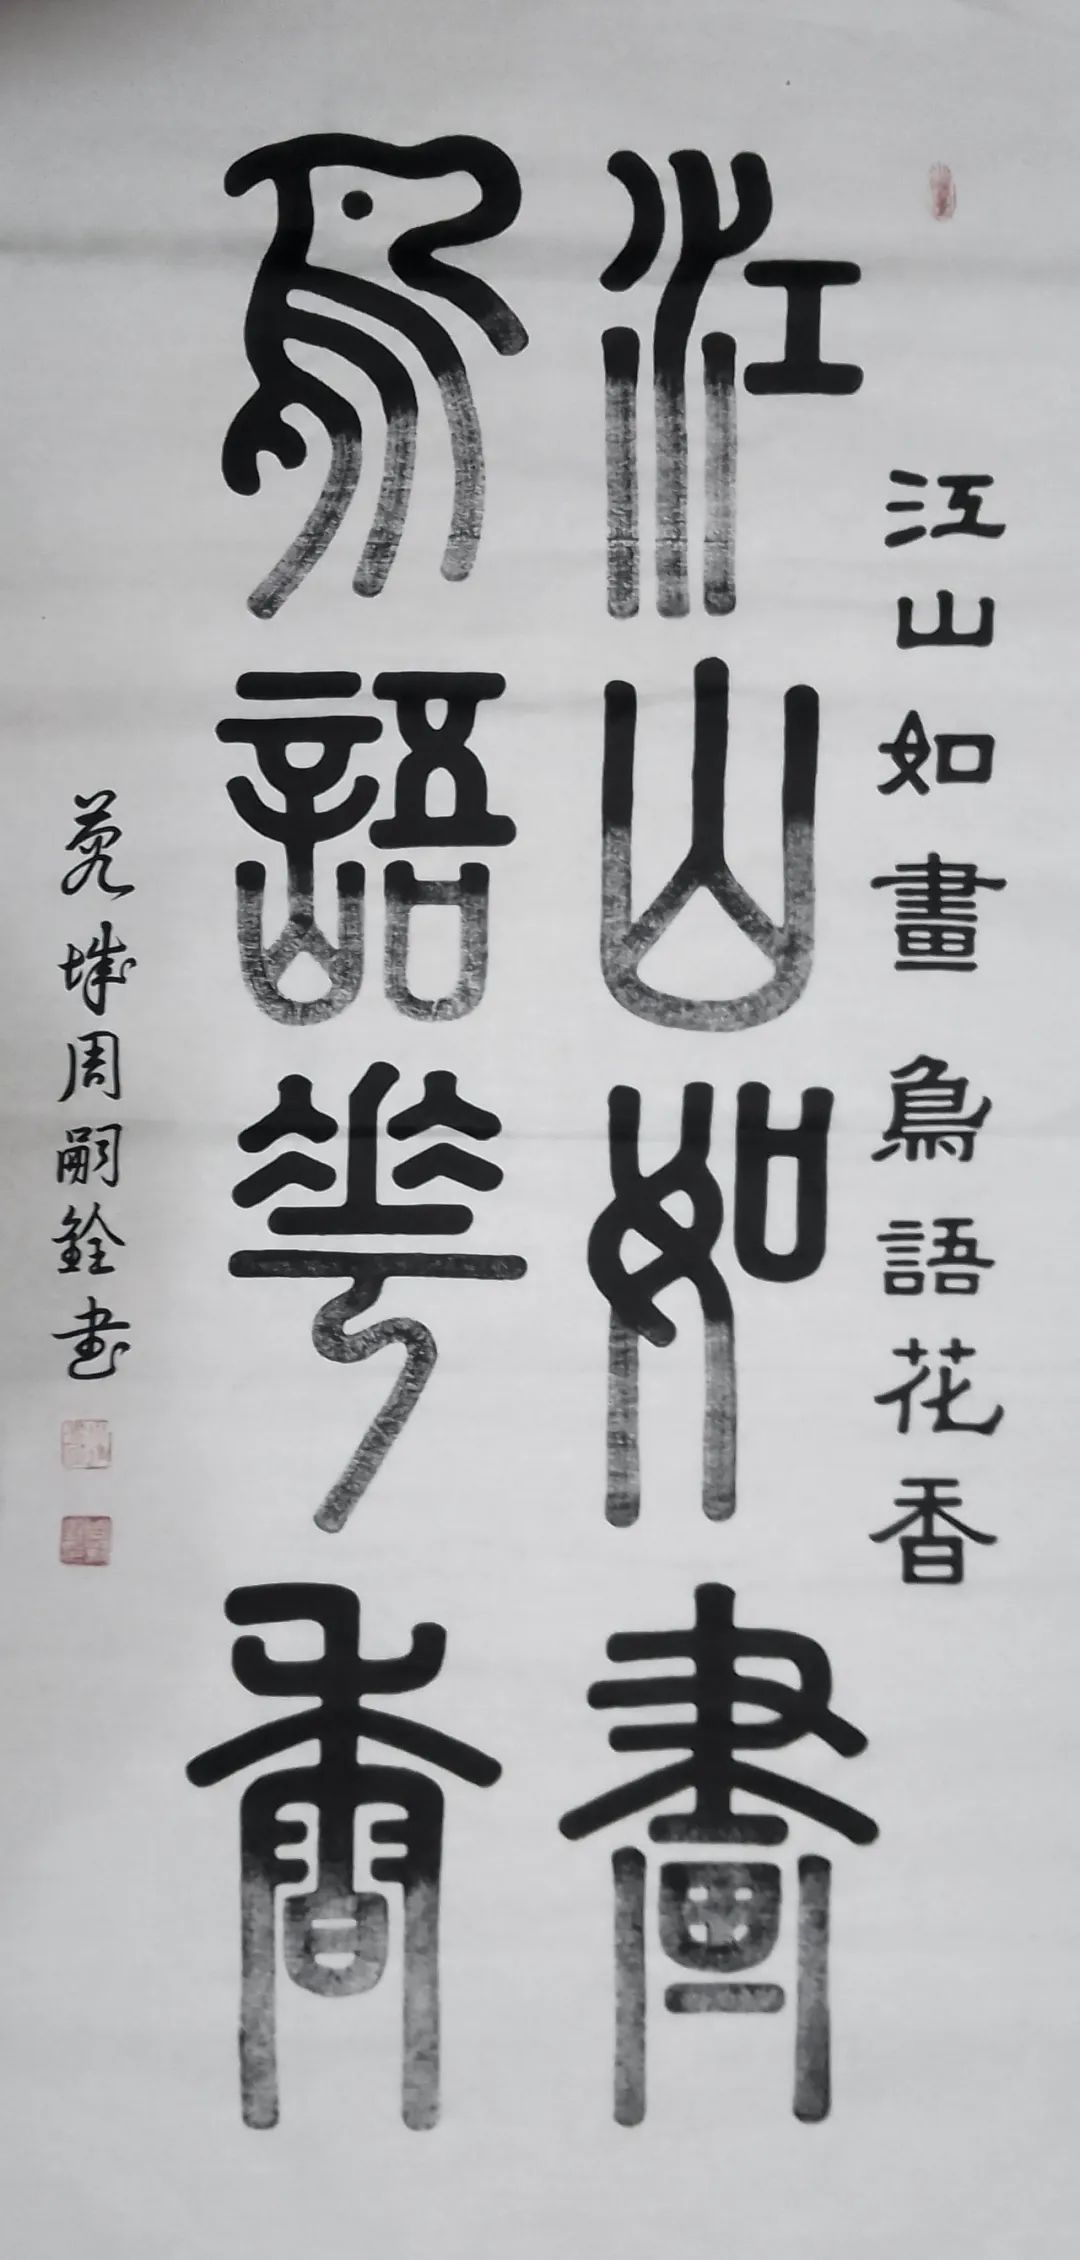 江山如畫鳥語花香
江山如畫
鳥語華香
蔥城周嗣銓书